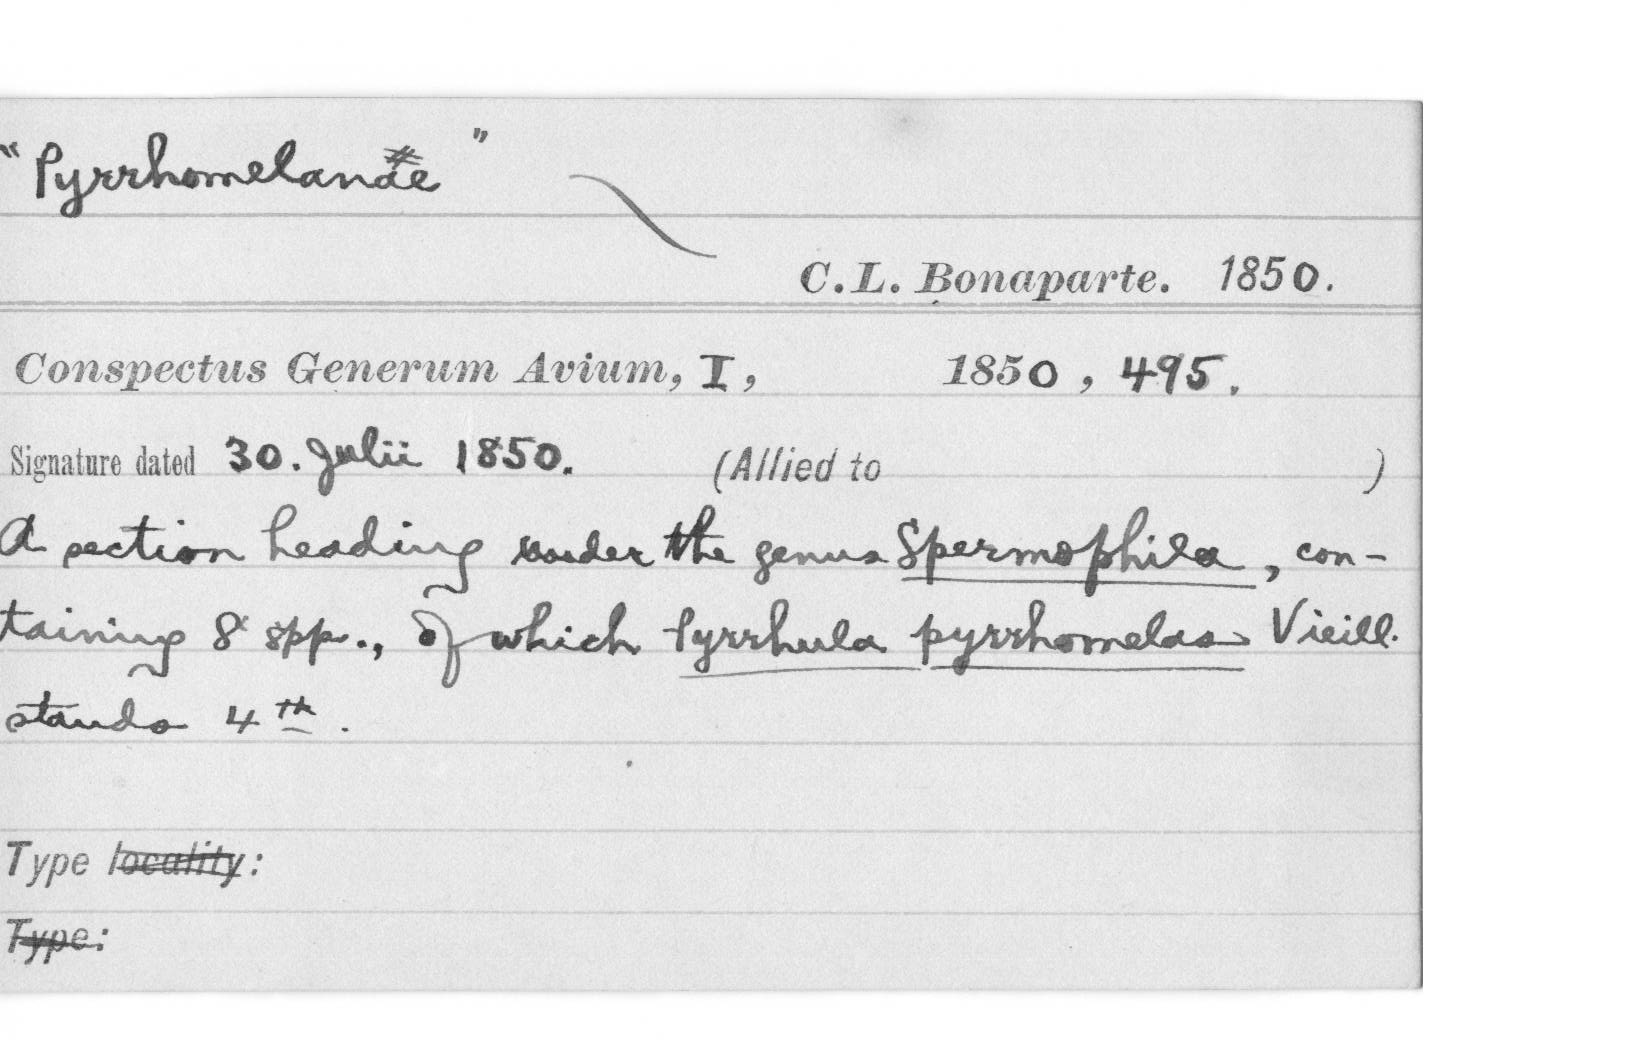 "Pyrrhomelanae"
C. L. Bonaparte. 1850.
Conspectus Generum Avium, I, 1850, 495.
Signature dated 30. Julii 1850. (Allied to )
A section heading under the genus Spermophila, con-
taining 8 spp., of which Pyrrhula pyrrhomelas Vieill.
stands 4th.
Type locality:
Type: